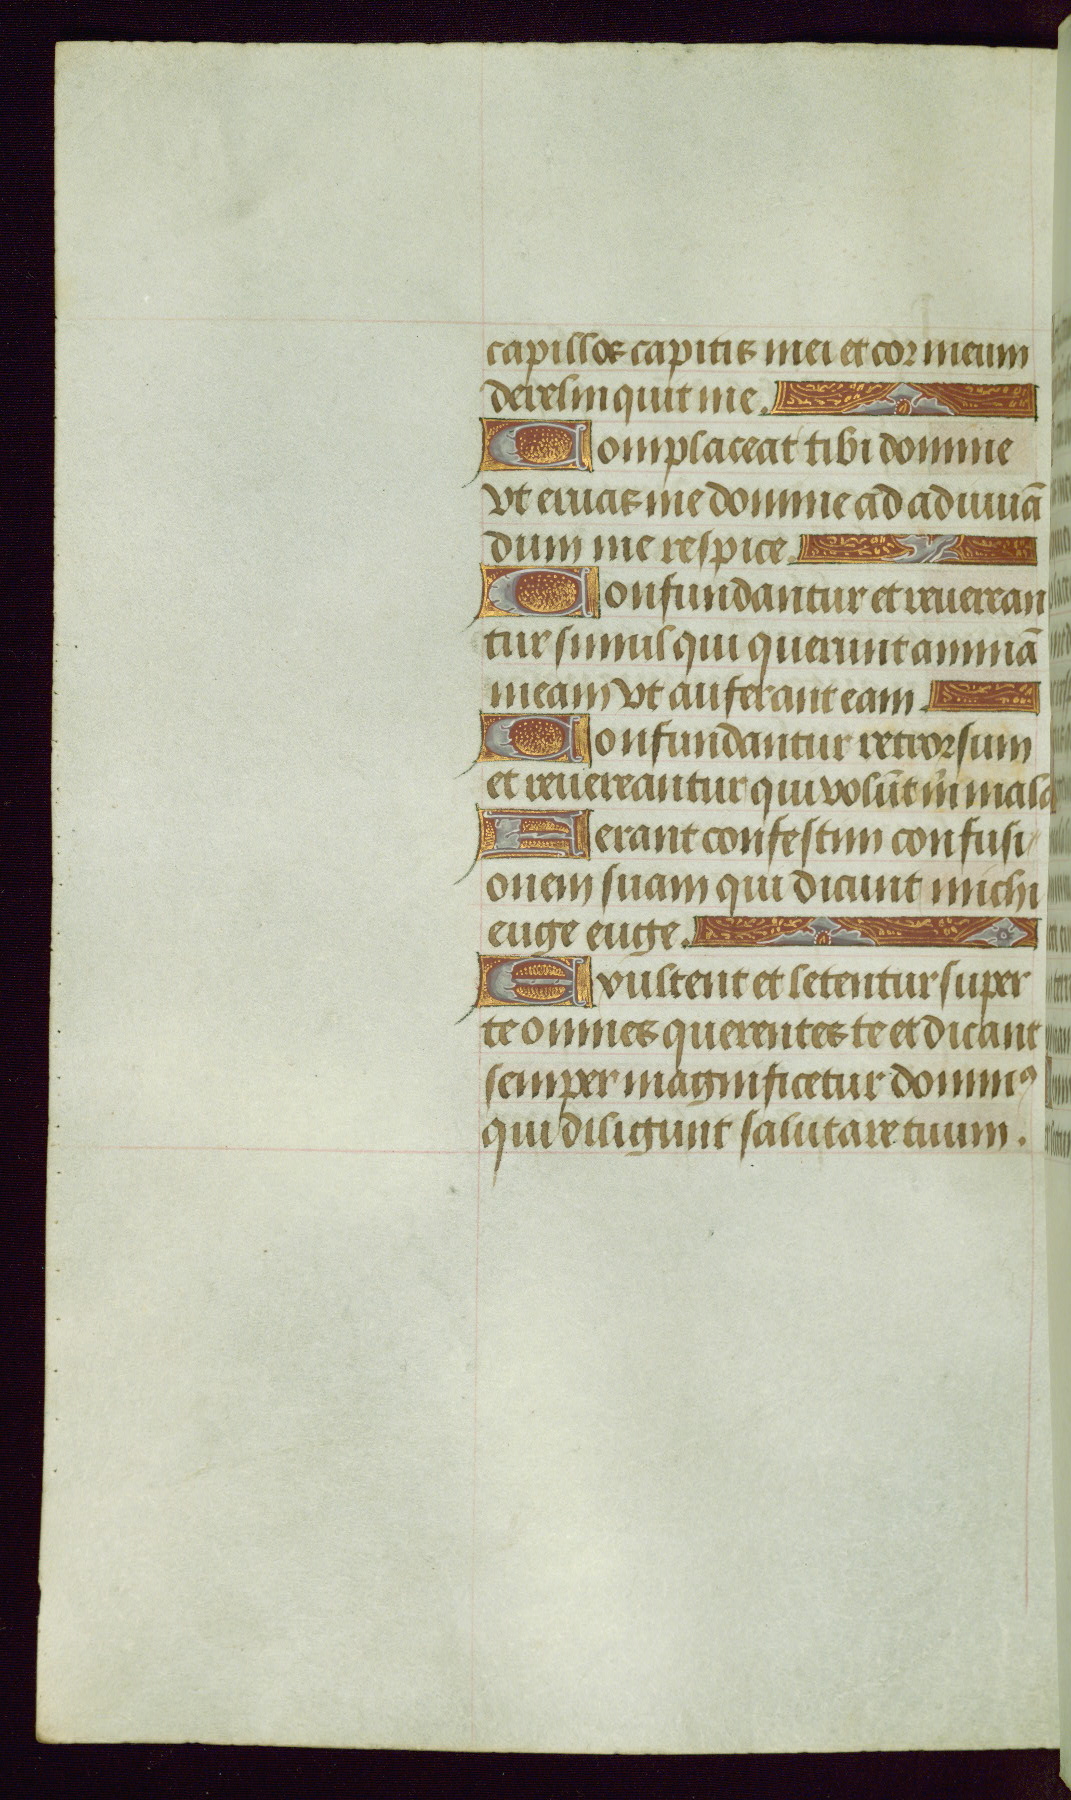 capillos capitis mei et cor meum
derelinquit me.
Complaceat tibi domine
vt eruas me domine ad adiuuā
dum me respice.
Confundantur et reuerean
tur simul qui querunt animā
meam vt auferant eam.
Confundantur retrorsum
et reuereantur qui volūt m̄ mala
Ferant confestim confusi
onem suam qui dicunt michi
euge euge.
Exultent et letentur super
te omnes querentes te et dicant
semper magnificetur dominꝰ
qui diligunt salutare tuum.